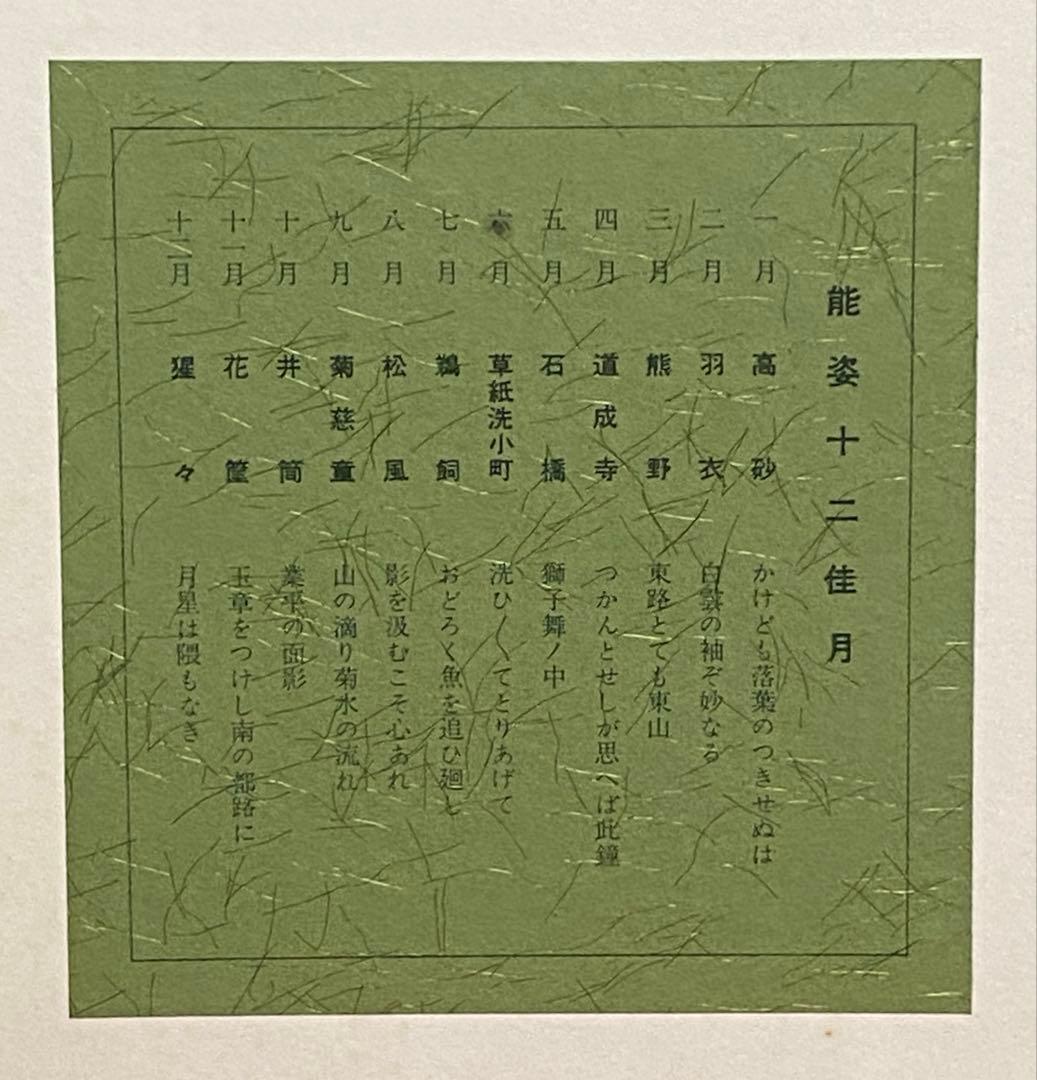 能姿十二佳月
一月 高砂 かけども落葉のつきせぬは
二月 羽衣 白雲の袖ぞ妙なる
三月 熊野 東路とても東山
四月 道成寺 つかんとせしが思へば此鐘
五月 石橋 獅子舞ノ中
六月 草紙洗小町 洗ひ〳〵てとりあげて
七月 鵜飼 おどろく魚を追ひ廻し
八月 松風 影を汲むこそ心あれ
九月 菊慈童 山の滴り菊水の流れ
十月 井筒 業平の面影
十一月 花筐 玉章をつけし南の都路に
十二月 猩々 月星は隈もなき